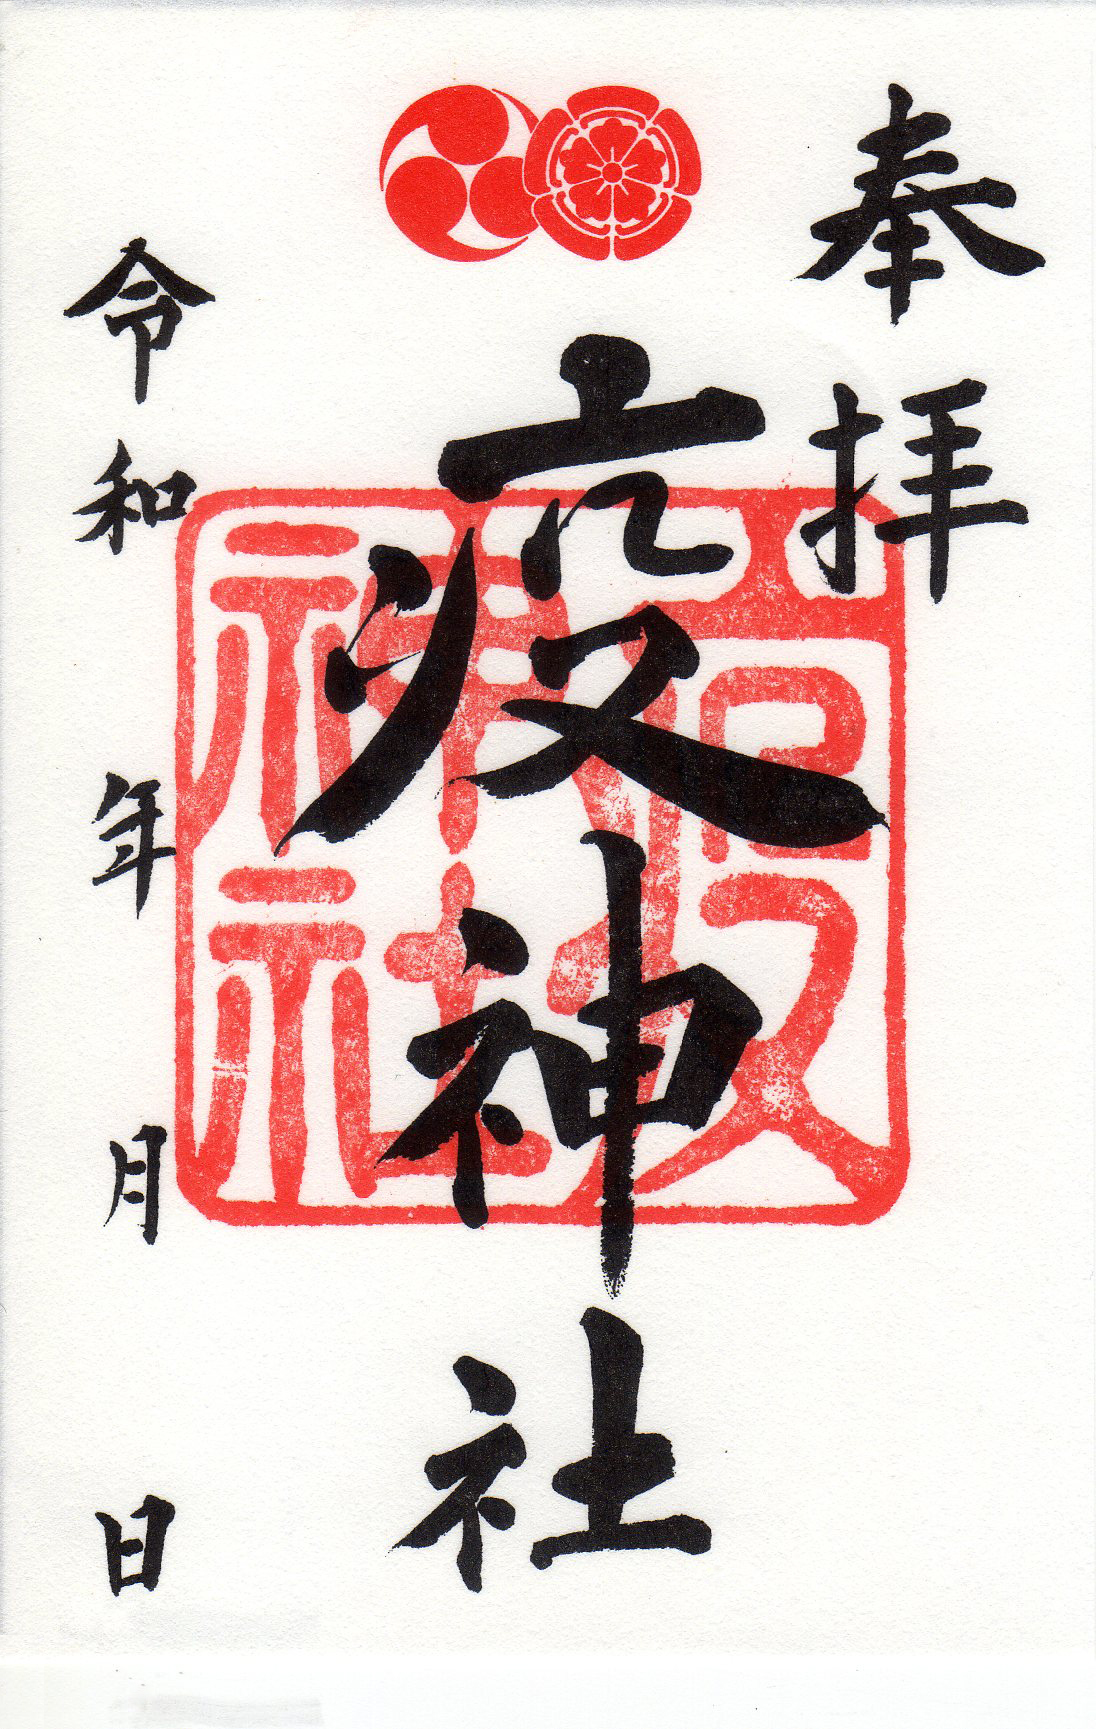 奉拝
疫神社
疫神社
令和 年 月 日